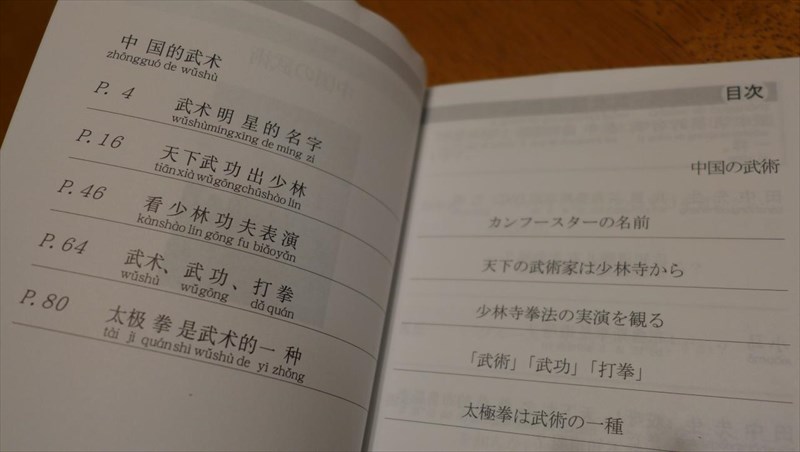 中国的武术
zhōngguó de wǔshù
P. 4 武术明星的名字
wǔshùmíngxīng de míng zi
P. 16 天下武功出少林
tiānxià wǔgōngchūshào lín
P. 46 看少林功夫表演
kànshào lín gōng fu biǎoyǎn
P. 64 武术、武功、打拳
wǔshù wǔgōng dǎ quán
P. 80 太极拳是武术的一种
tài jí quánshì wǔshù de yì zhǒng
[目次]
中国の武術
カンフースターの名前
天下の武術家は少林寺から
少林寺拳法の実演を観る
「武術」「武功」「打拳」
太極拳は武術の一種